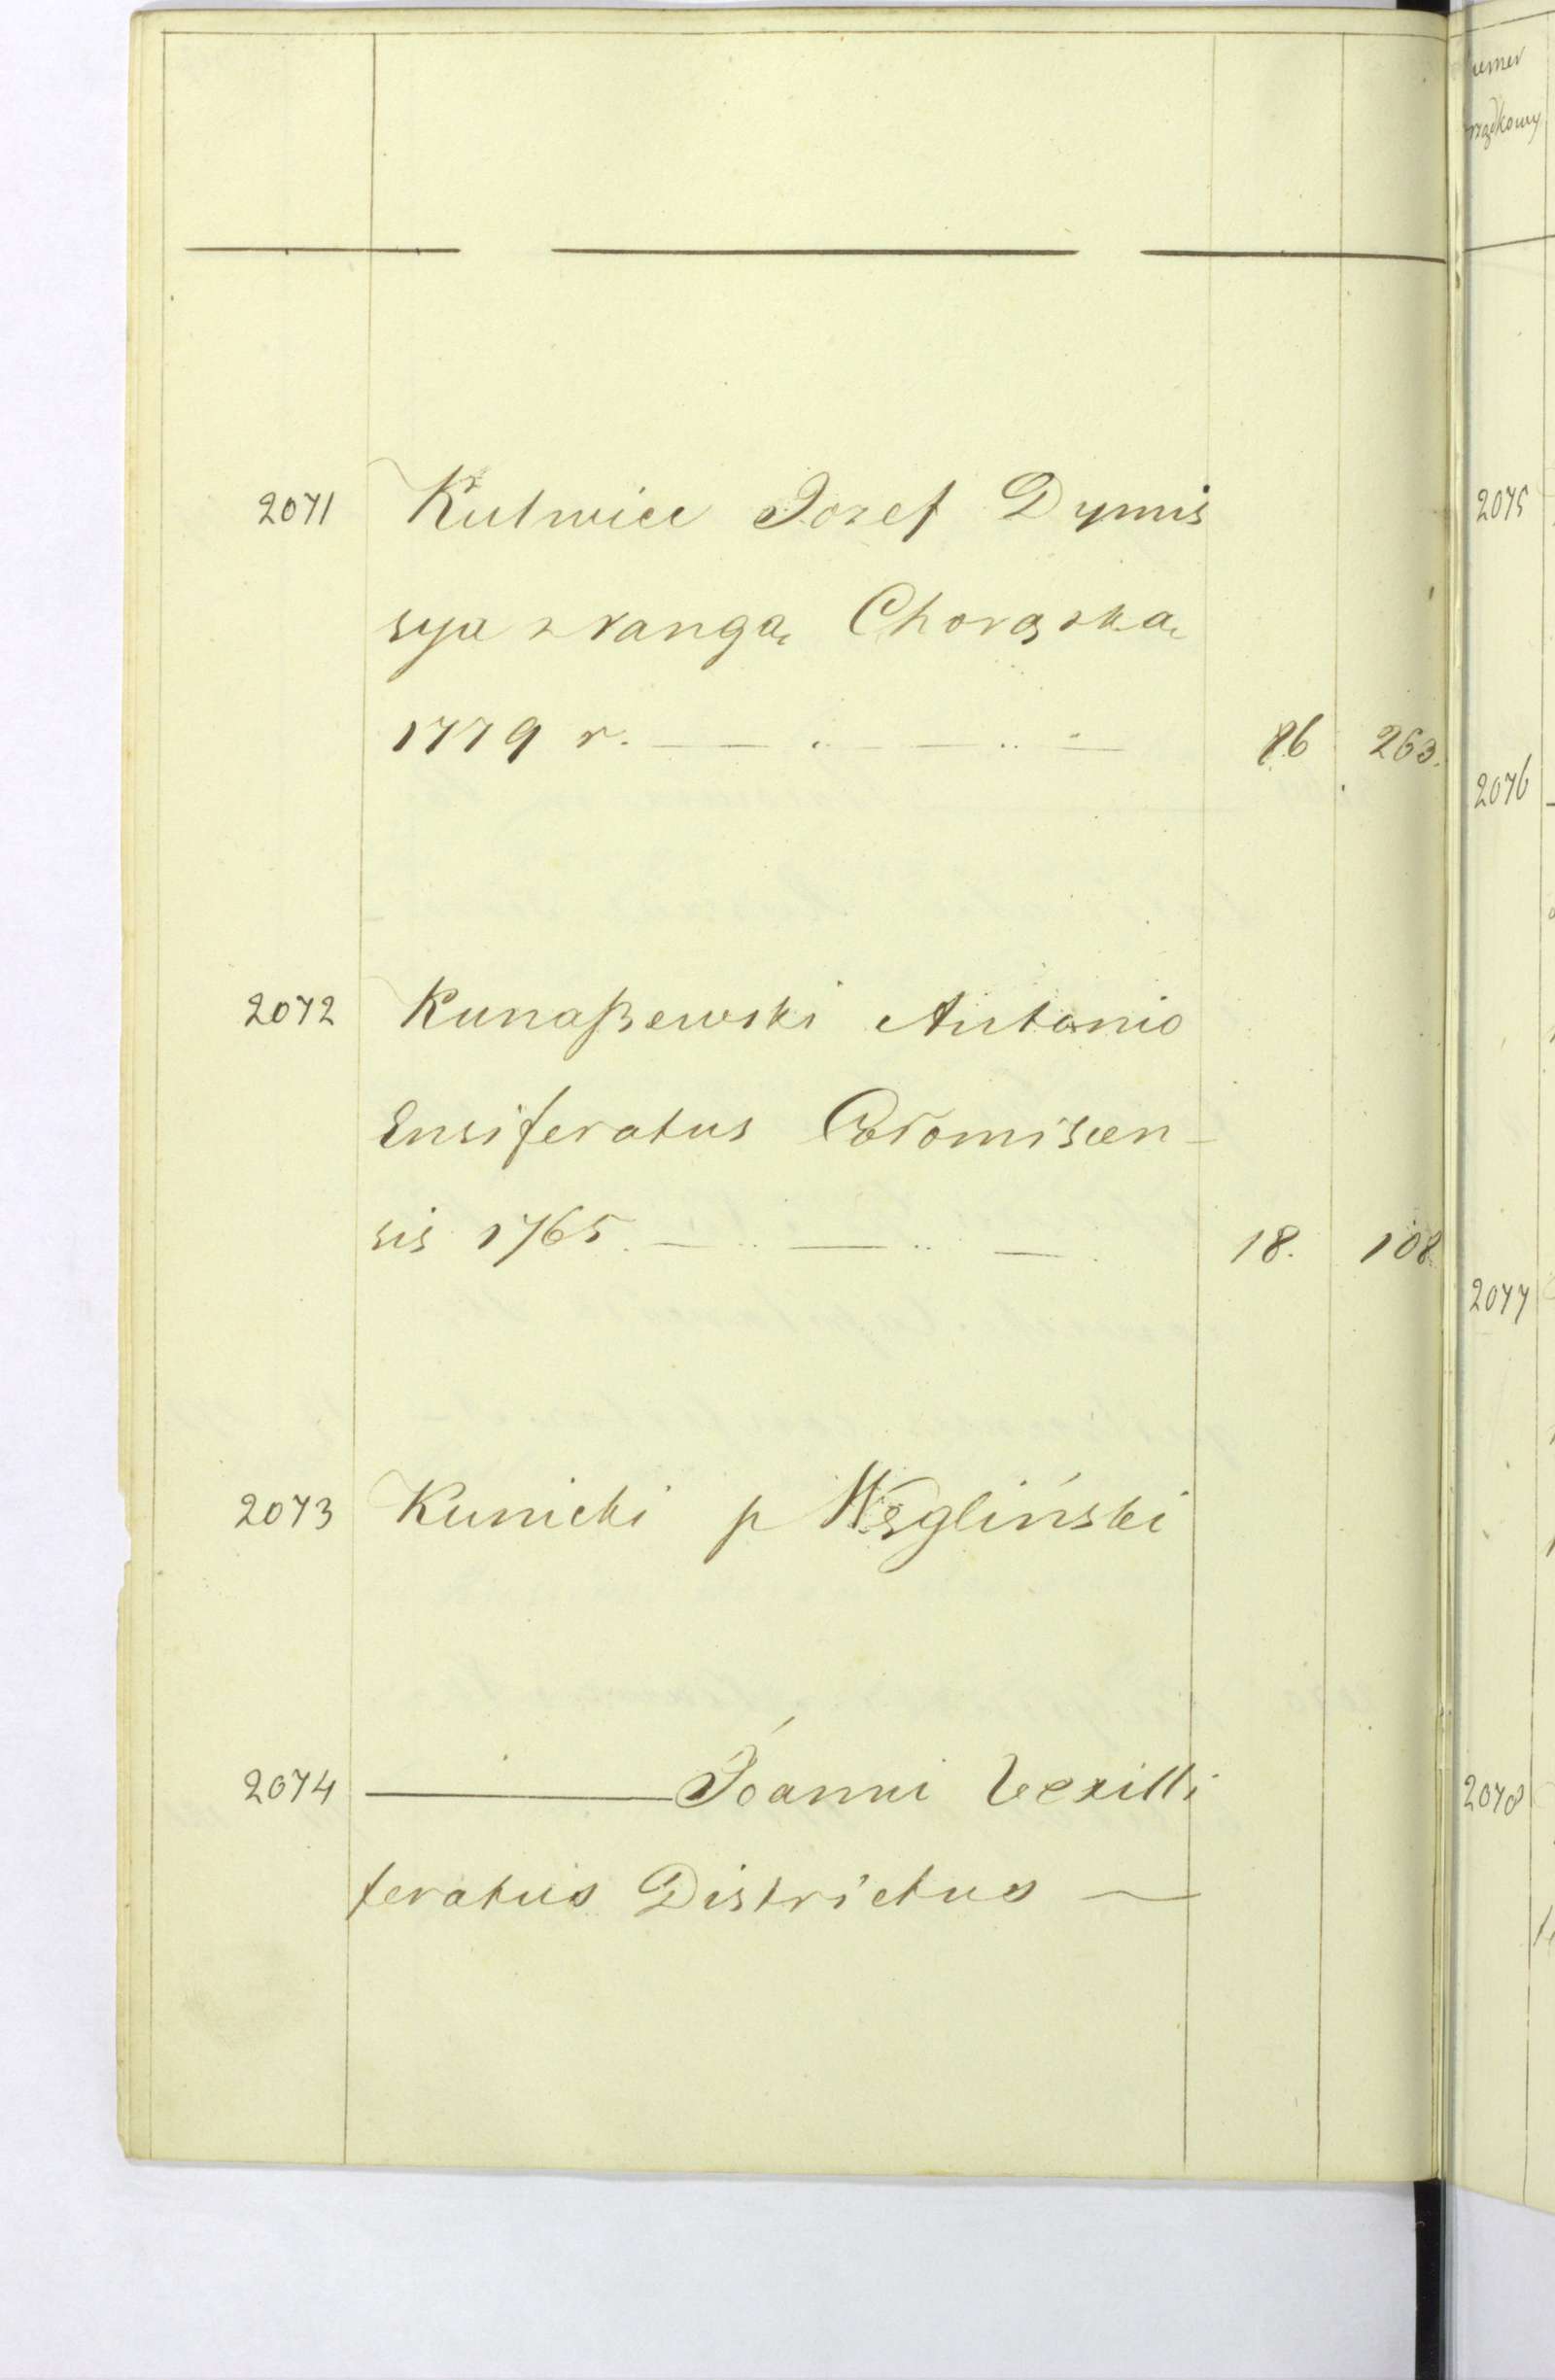 2071 Kutwice Jozef Dymis
sya z rangą Chorązką
1779 r. 86 263.
2072 Kunaßewski Antonio
Ensiferatus
sis 1765. 18. 108
2073 Kunicki p Węgliński
2074 Joanni Vexilli
feratus Districtus
2075
2076
2077
2078